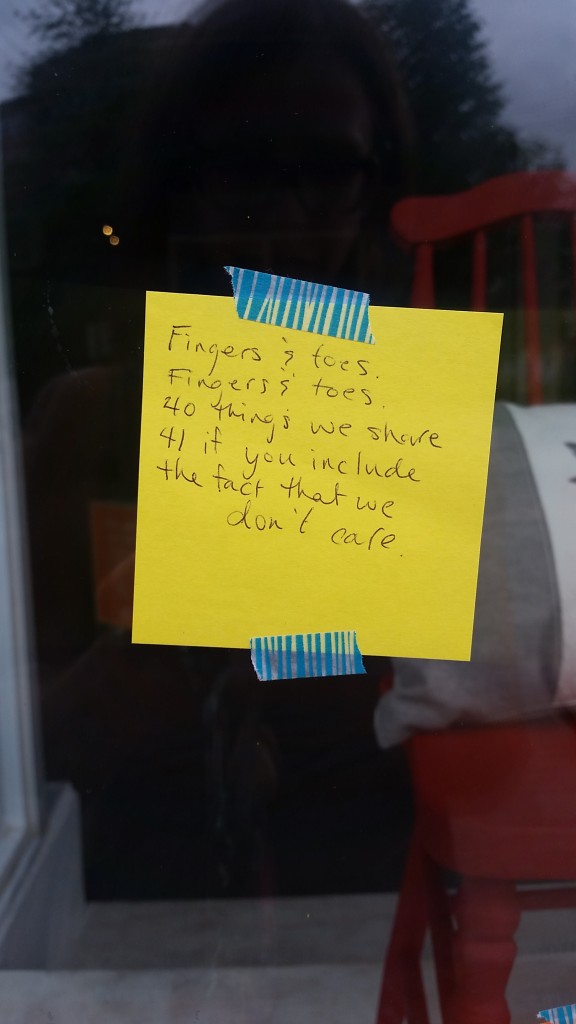 Fingers & toes.
Fingers & toes.
40 things we share
41 if you include
the fact that we
don't care.